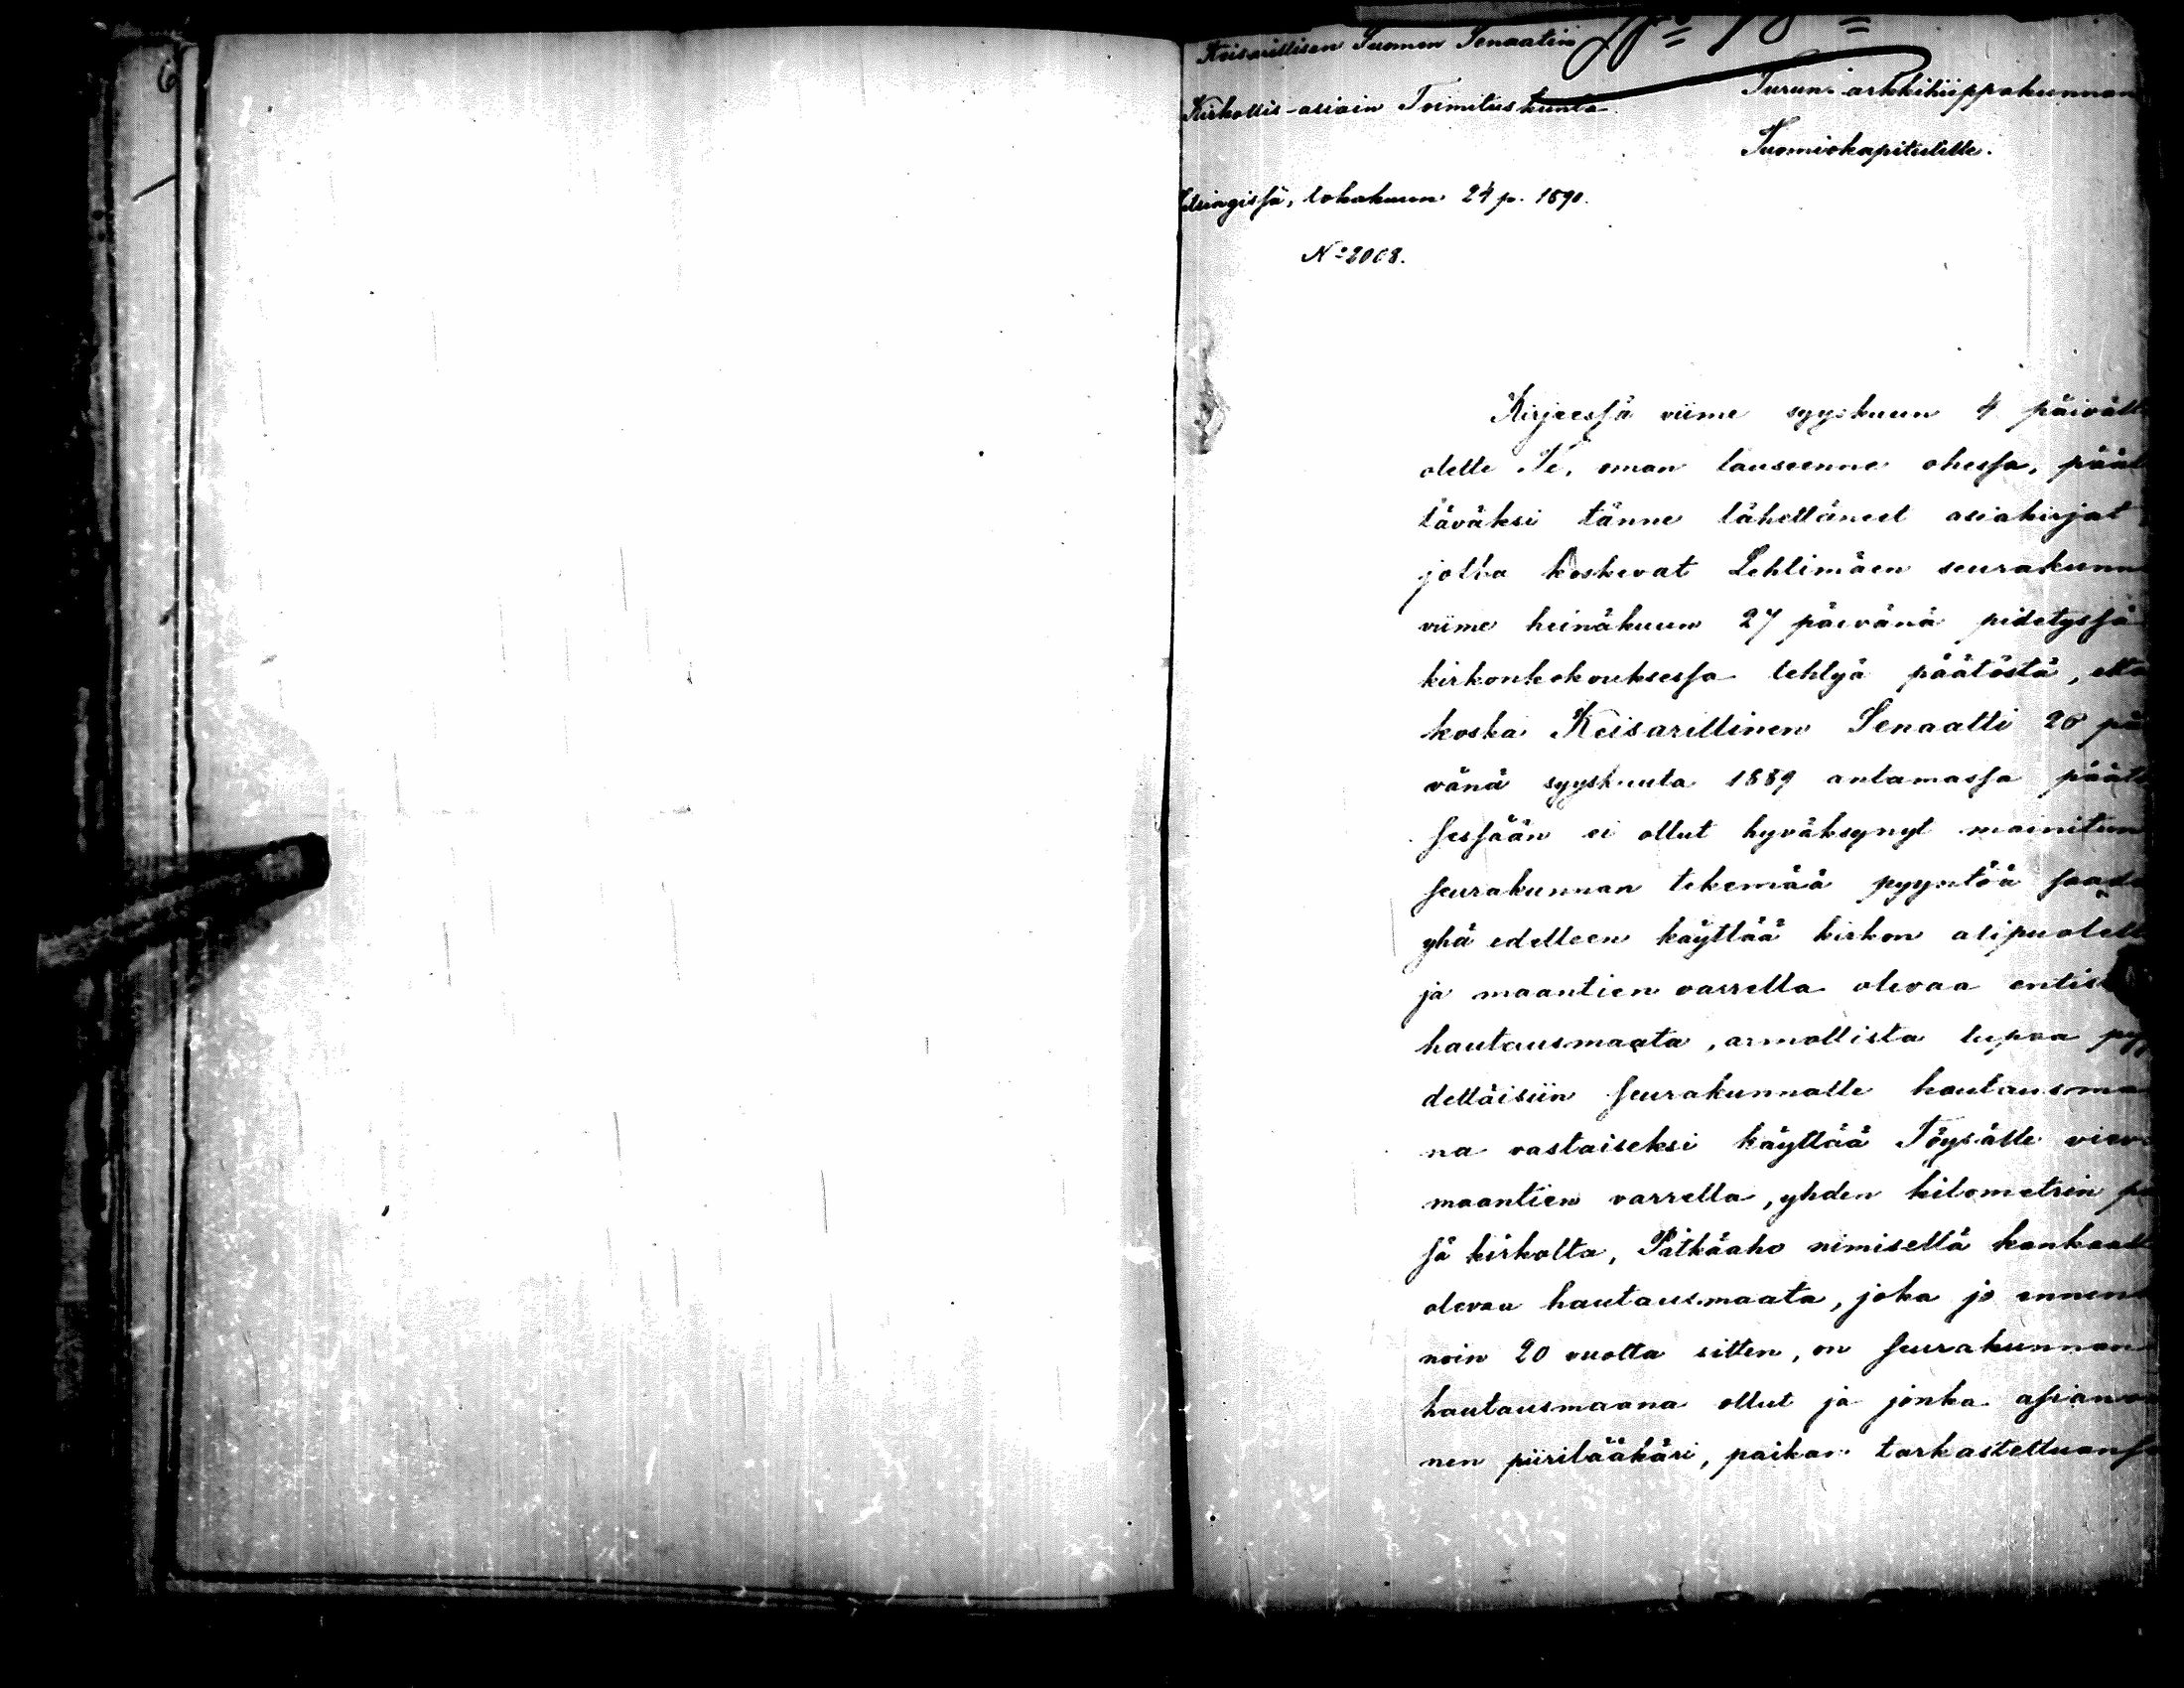 No 78
Keisarillisen Suomen Senaatin
Kirkollis-asiain Toimituskunta.
Turun arkkihiippakunnan
Tuomiokapitulille.
Helsingissä, lokakuun 24 p. 1890.
No 2008.
Kirjeessä viime syyskuun 4 päivält
olette Te, oman lauseenne ohessa, päät
täväksi tänne lähettäneet asiakirjat,
jotka koskevat Lehtimäen seurakunn
viime heinäkuun 27 päivänä pidetyssä
kirkonkokouksessa tehtyä päätöstä, että
koska Keisarillinen Senaatti 20 päi
vänä syyskuuta 1889 antamassa päätö
sessään ei ollut hyväksynyt mainitun
seurakunnan tekemää pyyntöä saada
yhä edelleen käyttää kirkon alipuolell
ja maantien varrella olevaa entis
hautausmaata, armollista lupaa pyy
dettäisiin seurakunnalle hautausmaa
na vastaiseksi käyttää Töysälle viev
maantien varrella, yhden kilometrin pä
sä kirkolta, Pätkäaho nimisellä kankaall
olevaa hautausmaata, joka jo ennen
noin 20 vuotta sitten, on seurakunnan
hautausmaana ollut ja jonka asiano
nen piirilääkäri, paikan tarkastettuansa